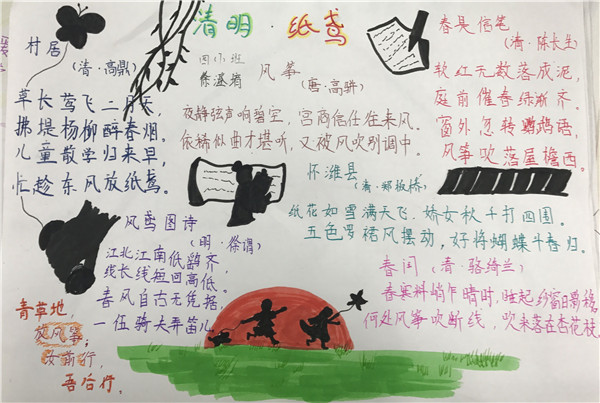 清明·纸鸢
村居
(清·高鼎)
草长莺飞二月天,
拂堤杨柳醉春烟。
儿童散学归来早,
忙趁东风放纸鸢。
风筝
(唐·高骈)
夜静弦声响碧空,宫商信任往来风。
依稀似曲才堪听,又被风吹别调中。
春是信笔
(清·陈长生)
软红无数落成泥,
庭前催春绿渐齐。
窗外忽转鹦鹉语,
风筝吹落屋檐西。
怀潍县
(清·郑板桥)
纸花如雪满天飞,娇女秋千打四围。
五色罗裙风摆动,好将蝴蝶斗春归。
风鸢图诗
(明·徐谓)
江北江南低鹞齐,
线长线短回高低。
春风自古无凭据,
一伍骑夫弄笛儿。
春闺(清·骆绮兰)
春寒料峭乍晴时,睡起纱窗日
何处风筝吹断线,吹来落在杏花枝
青草地,
放风筝,
汝前行,
吾后行。